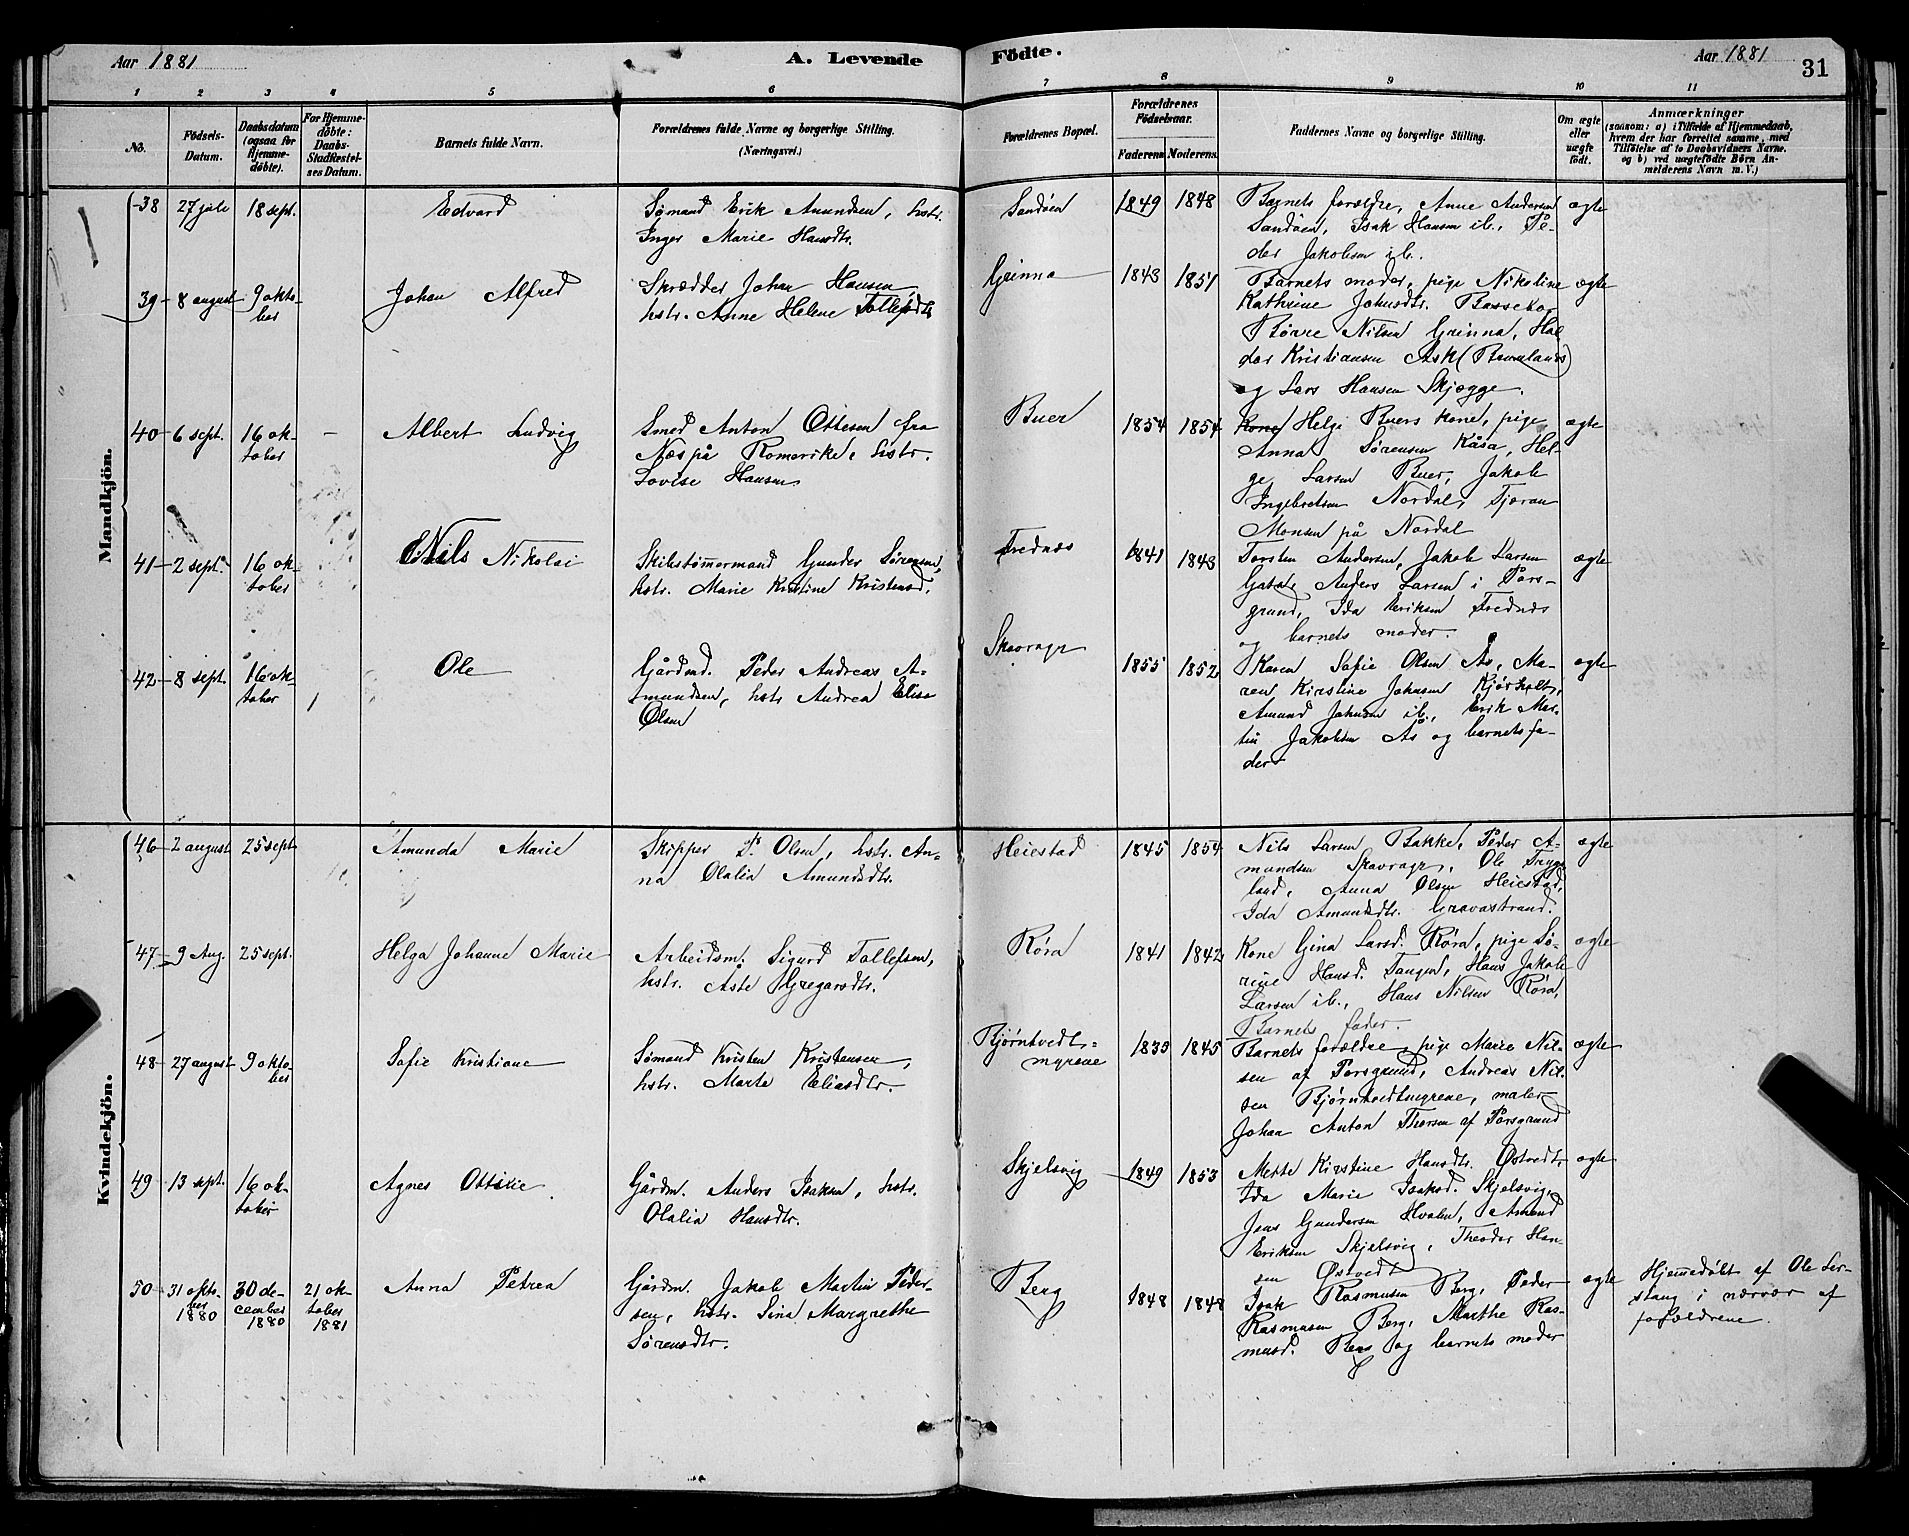 Aar 1881
A. Levende
Födte.
Aar 1881
31
1 2 3 4 5 6 7 8 9 10 11
No.
Födsels-Datum.
Daabsdatum (ogsaa for Hjemmedöbte).
For Hjemmedöbte: Daabs-Stadfæstelses Datum.
Barnets fulde Navn.
Forældrenes fulde Navne og borgerlige Stilling.
(Næringsvei.)
Forældrenes Bopæl.
Forældrenes Födselsaar.
Faderens.
Moderens.
Faddernes Navne og borgerlige Stilling.
Om ægte eller uægte födt.
Anmærkninger
(saasom: a) i Tilfælde af Hjemmedaab, hvem der har forrettet samme, med Tilföielse af to Daabsvidners Navne. og b) ved uægtefödte Börn Anmelderens Navn m. V.)
Mandkjön.
38 27 juli 18 sept. Edvard
Sømand Erik Amundsen, hstr.
Inger Marie Hansdtr.
Sandøen 1849 1848
Barnets forældre, Anne Andersen
Sandøen, Isak Hansen ib., Pe-
der Jakobsen ib.
ægte
39 8 august 9 okto-
ber
Johan Alfred
Skrædder Johan Hansen
hstr. Anne Helene Tollefsdtr
Grinna 1843 1851
Barnets moder, pige Nikoline
Kathrine Johnsdtr. Bassebo
Børre Nilsen Grinna, Hal
dor Kristiansen Ask
og Lars Hansen Skjegge.
ægte
40 6 sept. 16 ok-
tober
-
Albert Ludvig
Smed Anton Ottesen fra
Næs på Romerike, hstr.
Lovise Hansen
Buer 1854 1854
Kone Helge Buers kone, pige
Anna Sørensen Kåsa, Hel-
ge Larsen Buer, Jakob
Ingebretsen Nordal, Tjøran
Monsen på Nordal
ægte
41 2 sept. 16 ok-
tober
Nils Nikolai
Skibstømmermand Gunder Sørensen,
hstr. Marie Kristine Kristensd.
Frednæs 1841 1843
Torsten Andersen, Jakob Larsen
Anders Larsen i Pors-
grund, Ida Eriksen Frednæs
og barnets moder.
ægte
42 8 sept. 16 ok-
tober
Ole
Gårdmd. Peder Andreas A-
mundsen, hstr Andrea Elise
Olsen
Skavrager 1855 1852
Karen Sofie Olsen Ås, Ma-
ren Kirstine Johnsen Kjørholt,
Amund Johnsen ib., Erik Mar-
tin Jakobsen Ås og barnets fa-
der
ægte
Kvindekjön.
46 2 august 25 sept
Amunda Marie
Skipper P. Olsen, hstr. An-
na Olalia Amundsdtr.
Heiestad 1845 1854
Nils Larsen Bakke, Peder A-
mundsen Skavrager, Ole Tryg-
land, Anna Olsen Heiestad,
Ida Amundsdtr. Gravastrand.
ægte
47 9 Aug. 25 sept.
Helga Johanne Marie
Arbeidsm. Sigurd Tollefsen,
hstr. Åste Hjregarsdtr.
Røra 1841 1842
Kone Gina Larsd. Røra, pige Sø-
rine Hansd. Tangen, Hans Jakob
Larsen ib., Hans Nilsen Røra,
Barnets fader.
ægte
48 27 august 9 okto-
ber
Sofie Kristiane
Sømand Kristen Kristensen,
hstr. Marte Eliasdtr.
Bjørntvedt-
myrene
1835 1845
Barnets forældre, pige Marie Nil-
sen af Porsgrund, Andreas Nil-
sen Bjørntvedtmyrene, maler
Johan Anton Thorsen af Porsgrund
ægte
49 13 sept. 16 ok-
tober
Agnes Ottilie
Gårdm. Anders Isaksen, hstr.
Olalia Hansdtr.
Skjelsvig 1849 1853
Mette Kirstine Hansdtr. Østvedt,
Ida Marie Isaksd. Skjelsvig,
Jens Gundersen Hvalen, Amund
Eriksen Skjelsvig, Theodor Han-
sen Østvedt
ægte
50 31 okto-
ber
1880
30 de-
cember
1880
21 ok-
tober
1881
Anna Petrea
Gårdm. Jakob Martin Peder-
sen, hstr. Sina Margrethe
Sörensdtr.
Berg 1848 1848
Isak Rasmusen Berg, Peder
Rasmusen Berg, Marthe Ras-
musd. Berg og barnets moder
ægte
Hjemmedøbt af Ole Ler-
stang i nærvær af
forældrene.